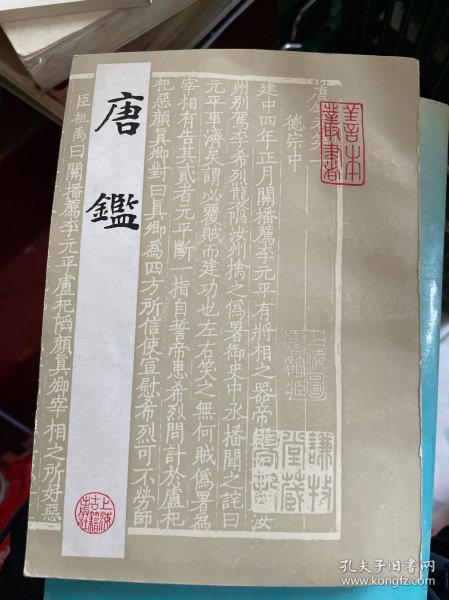 唐鑑
善本
叢書
德宗中
建中四年正月關播薦李元平有將相之器帝
州别駕李希烈襲䧟汝州擒之僞署御史中丞播聞之詫曰
元平事濟矣謂必覆賊而建功也左右笑之無何賊僞署爲
宰相有告其貳者元平斷一指自誓帝患希烈問計於盧杞
杞惡顔真卿對曰真卿爲四方所信使宣慰希烈可不勞師
臣祖禹曰關播薦李元平盧杞䧟顔真卿宰相之所好惡
謙牧
堂藏
書記
上海
古籍
孔夫子旧书网
www.kongfz.com